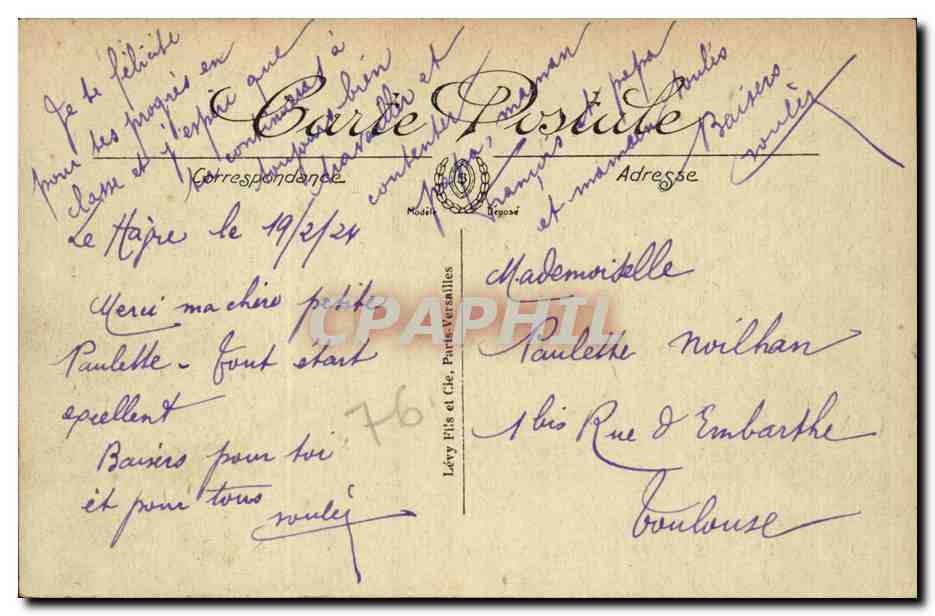 Je te félicite
pour tes progrès en
classe et j'espère que
continueras à
toujours bien
travailler et
contenter maman
papa,
français et papa
et maman
Baisers
Carte Postale
Correspondance
Adresse
Modèle Déposé
Le Havre le 19/2/24
Merci ma chère petite
Paulette - Tout était
excellent
Baisers pour toi
et pour tous
76
Lévy Fils et Cie, Paris-Versailles
Mademoiselle
Paulette Noilhan
1 bis Rue d'Embarthe
Toulouse
CPAPHIL